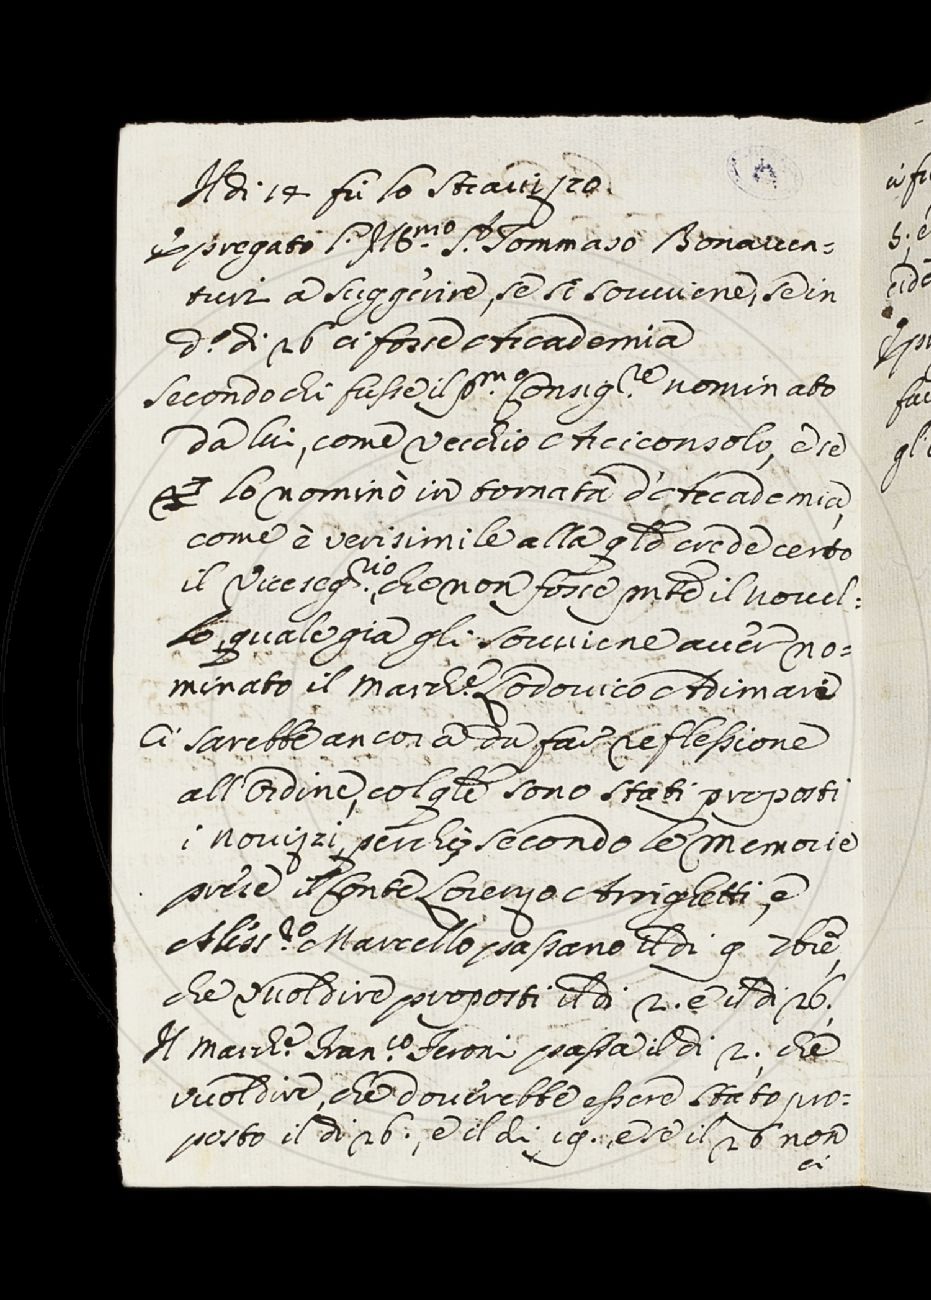 Il di 14 fù lo Stravizzo.
È pregato l'Ill.mo S.r Tommaso Bonaven=
turi a suggerire, se si sovviene, se in
d.o di 26 ci fosse Accademia
Secondo chi fusse il p.mo Consig.re nominato
da lui, come vecchio Arciconsolo, e se
lo nominò in tornata d'Accademia,
come è verisimile alla q.le crede certo
il Viceseg.rio, che non fosse p.nte il novel=
lo, quale già gli sovviene aver no=
minato il March.e Lodovico Adimari
Ci sarebbe ancora da far reflessione
all'Ordine, col q.le sono stati proposti
i Novizzi, perchè secondo le Memorie
prese il Conte Lorenzo Arrighetti, e
Aless.ro Marcello passano il di 9 7bre,
che vuol dire proposti il di 2. e il di 26.
Il March.e Fran.co Feroni passa il di 2. che
vuol dire, che doverebbe essere stato pro=
posto il di 26., e il di 19., e se il 26 non
ci